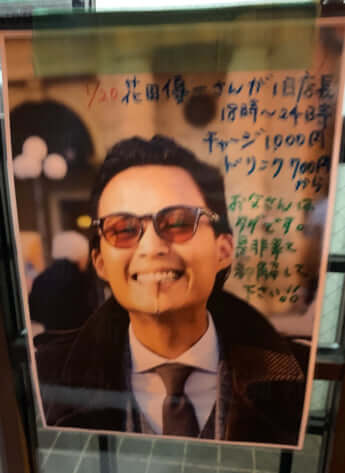 1/20 花田優一さんが1日店長
18時〜24時
チャージ1000円
ドリンク700円
から
お父さんは
タダです。
是非来て
和解して
下さい!!